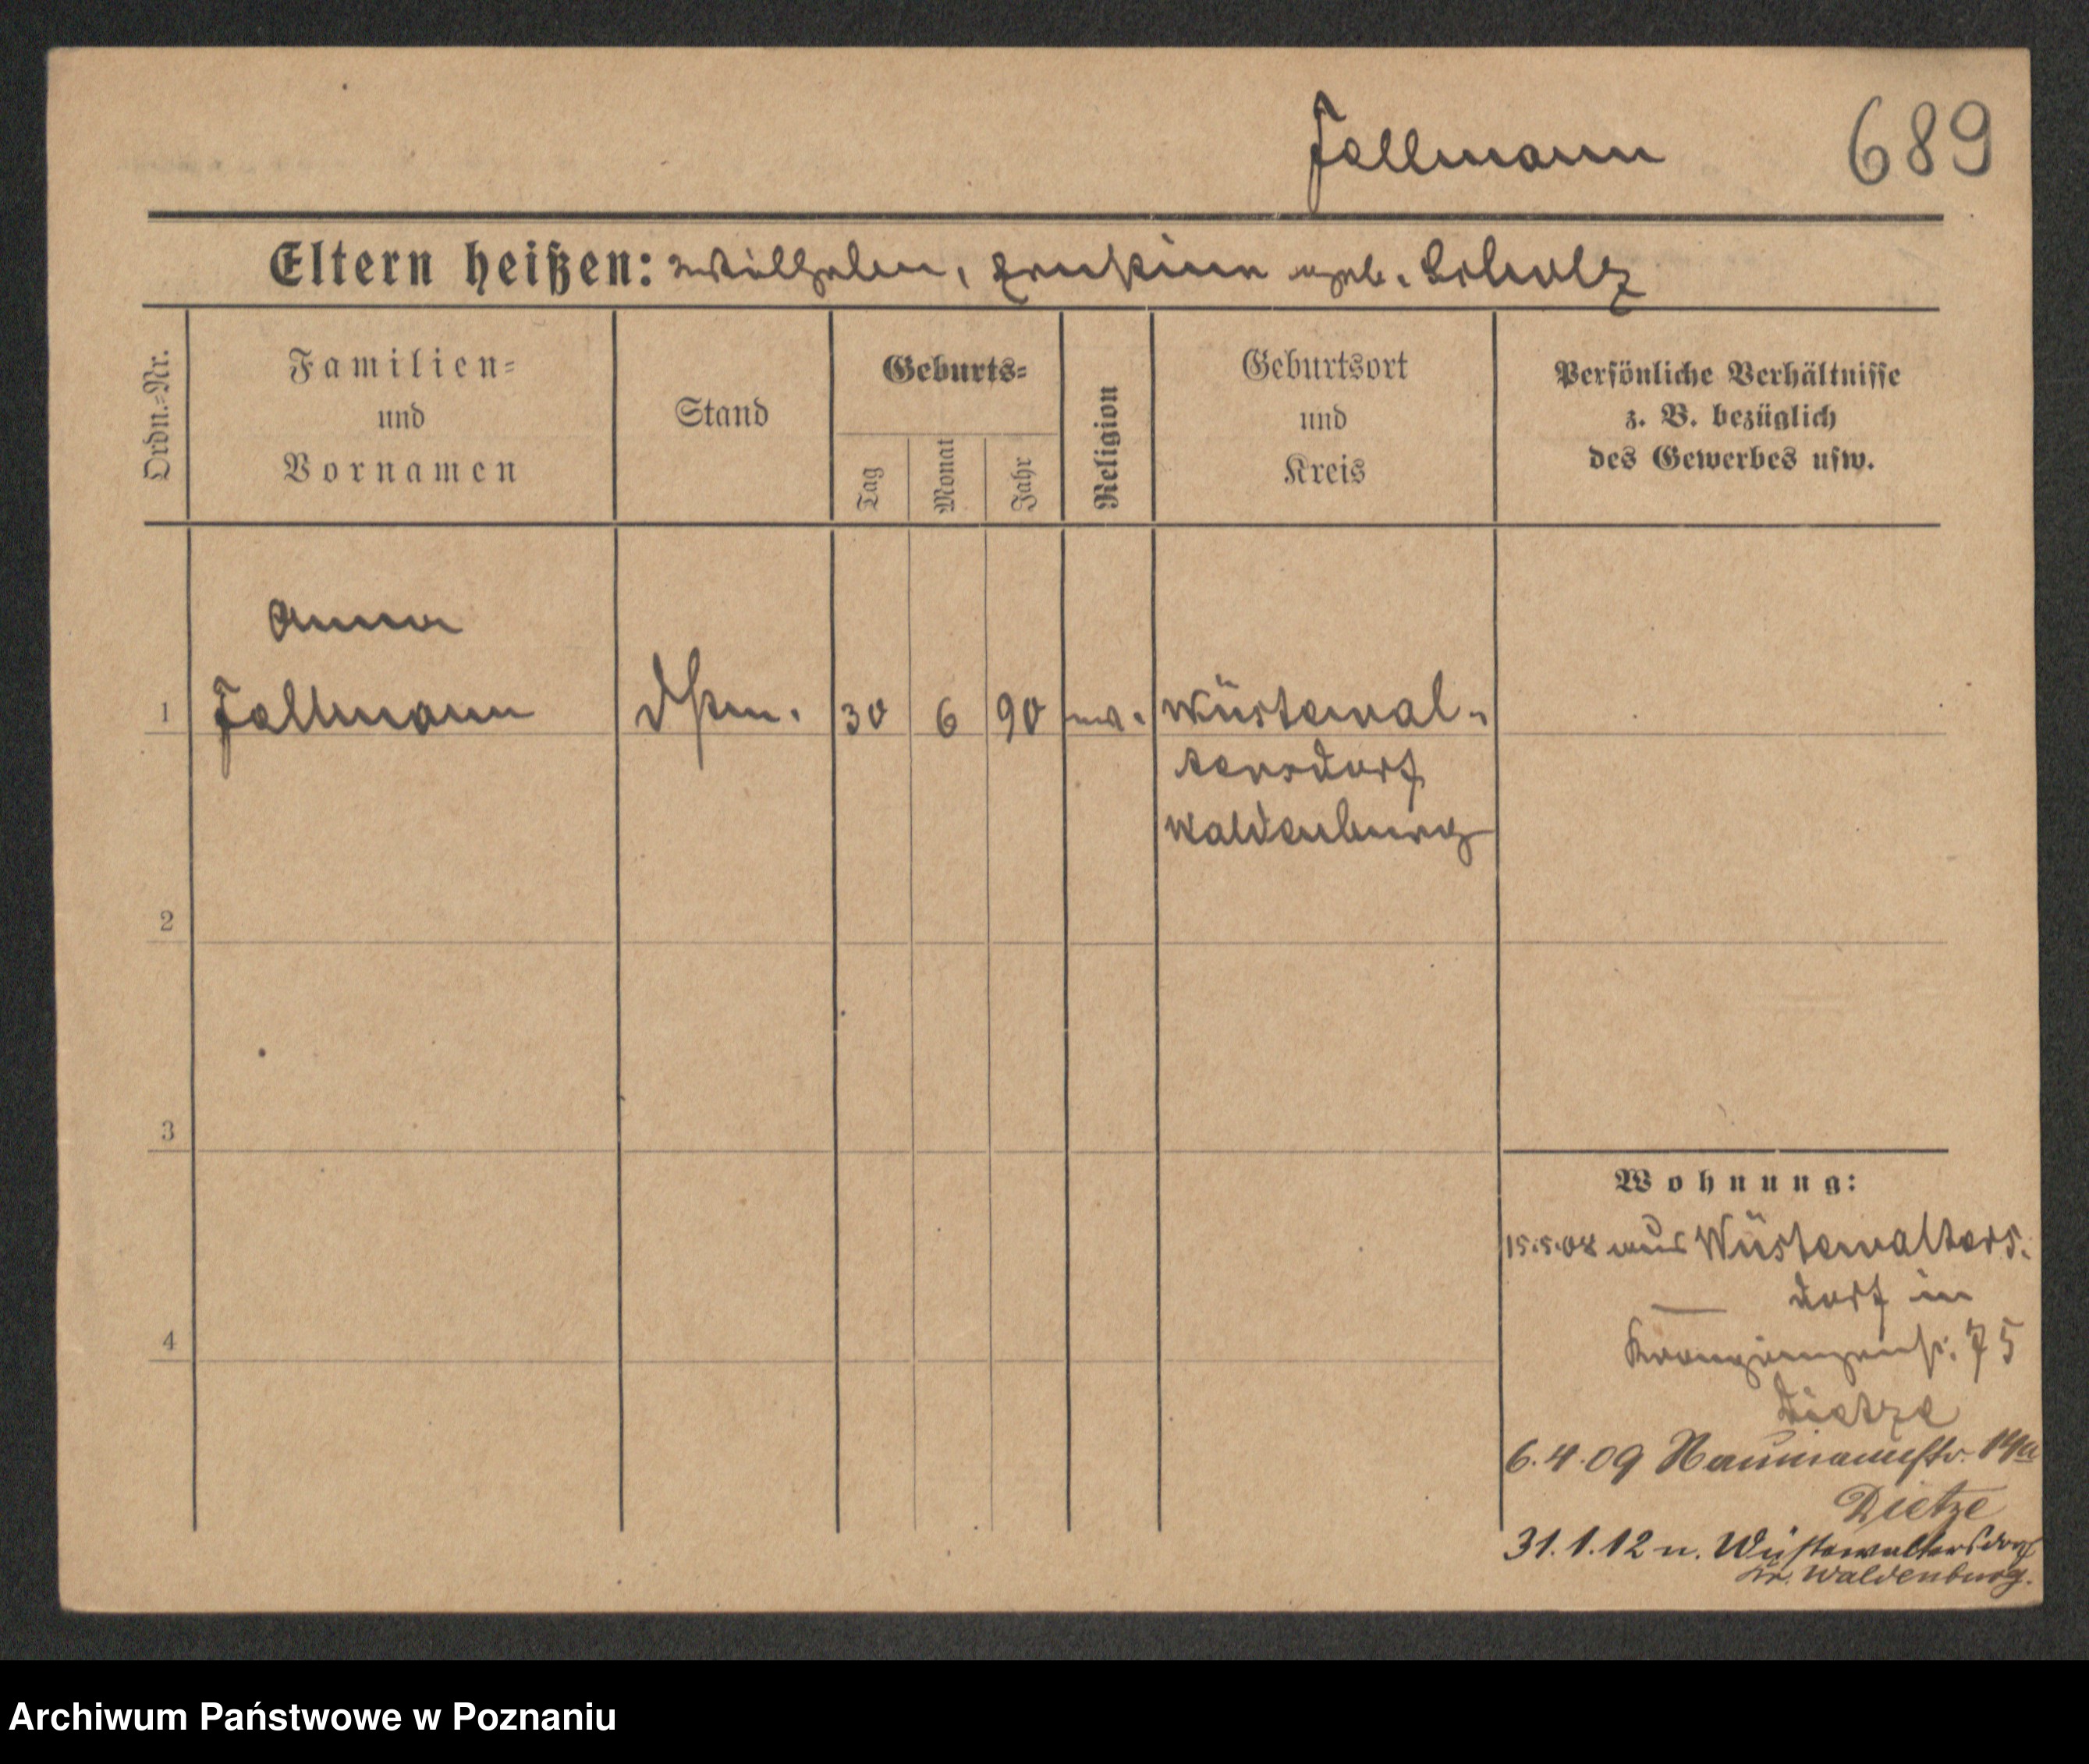 Fallmann 689
Eltern heißen: Wilhelm, geb. Scholz
Ordn.-Nr.
Familien-
und
Vornamen
Stand
Geburts-
Tag
Monat
Jahr
Religion
Geburtsort
und
Kreis
Persönliche Verhältnisse
z. B. bezüglich
des Gewerbes usw.
Anna
1 Fallmann 30 6 90 ev. Wüstewal-
tersdorf
Waldenburg
2
3
4
Wohnung:
15.5.08 aus Wüstewalters.
dorf in
Kronprinzenstr. 75
Dietze
6.4.09 Naumannstr. 14a
Dietze
31.1.12 n. Wüstewaltersdorf
Kr. Waldenburg.
Archiwum Państwowe w Poznaniu